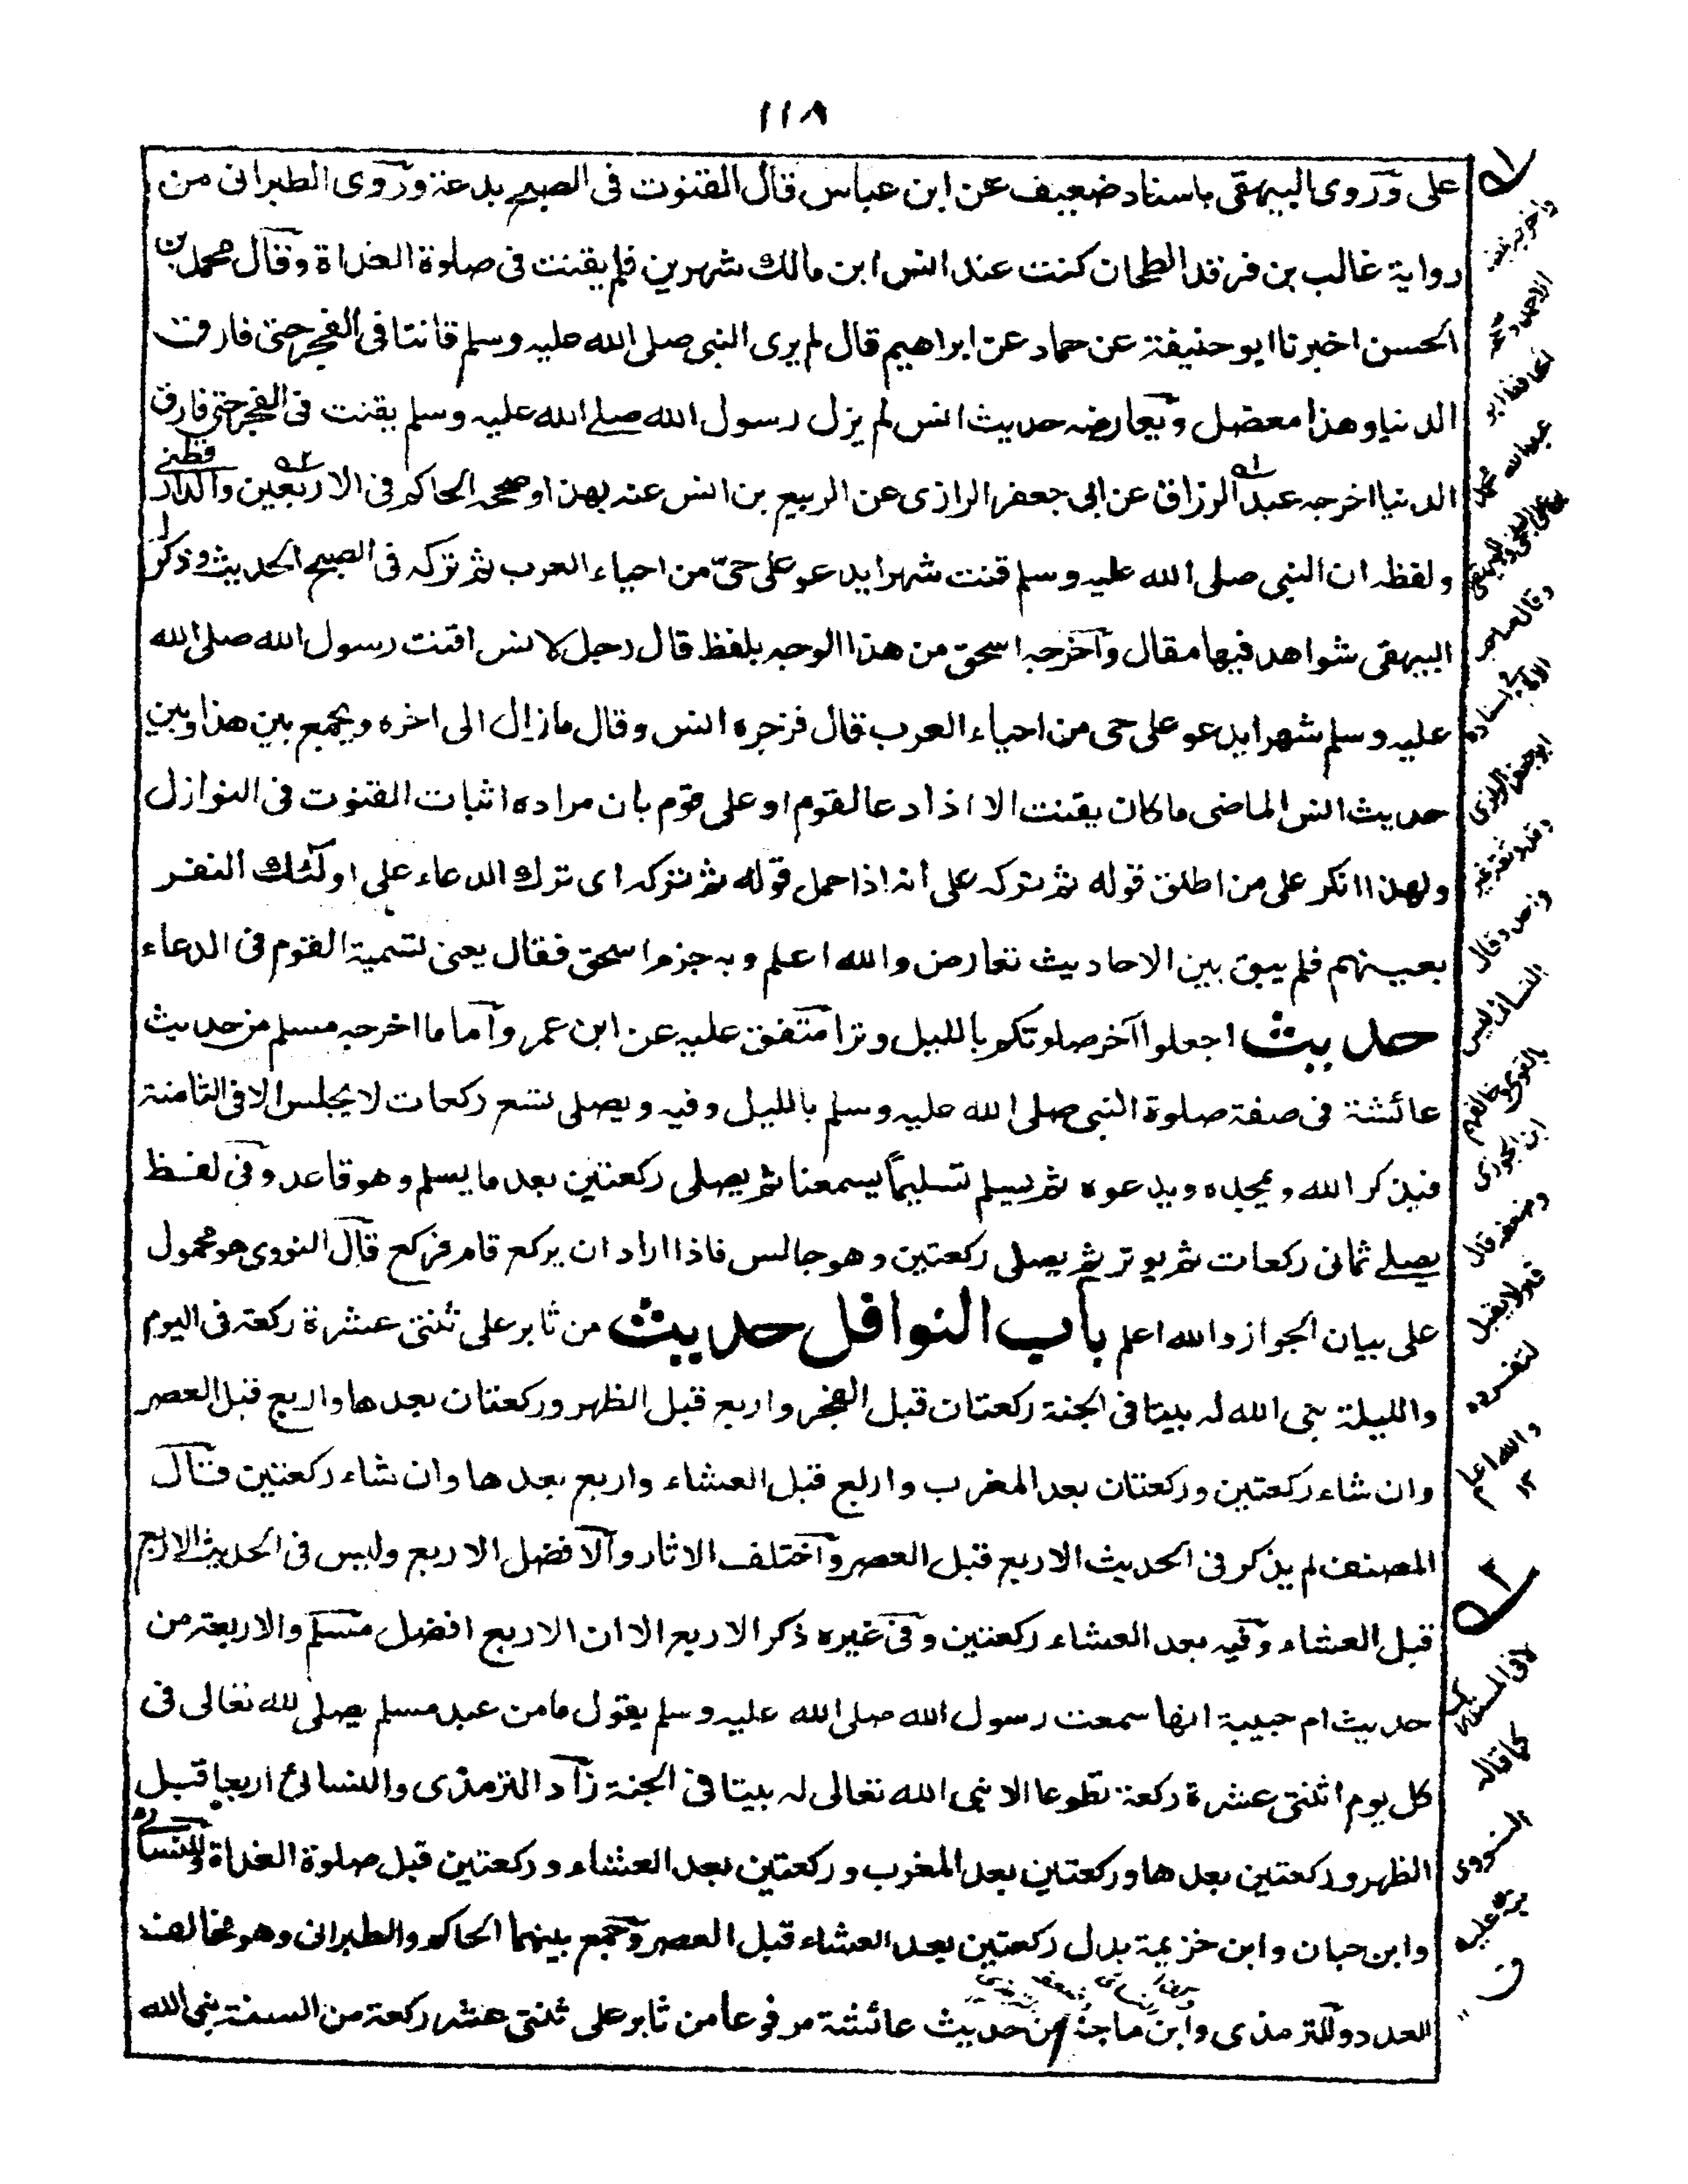 ١١٨
على وروى البيهقى باسناد ضعيف عن ابن عباس قال القنوت فى الصبح بدعة وروى الطبرانى من
رواية غالب بن فرقد الطحان كنت عند انس ابن مالك شهرين فلم يقنت فى صلوة الغداة وقال محمد بن
الحسن اخبرنا ابو حنيفة عن حماد عن ابراهيم قال لم يرى النبى صلى الله عليه وسلم قانتا فى الفجر حتى فارق
الدنيا وهذا معضل ويعارضه حديث انس لم يزل رسول الله صلے الله عليه وسلم يقنت فى الفجر حتى فارق
الدنيا اخرجه عبد الرزاق عن ابى جعفر الرازى عن الربيع بن انس عنه بهذا وصححه الحاكم فى الاربعين والدارقطنے
ولفظه ان النبى صلى الله عليه وسلم قنت شهرا يدعو على حىّ من احياء العرب ثم تركه فى الصبح الحديث وذكر
البيهقى شواهد فيها مقال وآخرجه اسحق من هذا الوجه بلفظ قال رجل لانس اقنت رسول الله صلى الله
عليه وسلم شهرا يدعو على حى من احياء العرب قال فزجره انس وقال ما زال الى اخره ويجمع بين هذا وبين
حديث انس الماضى ما كان يقنت الا اذا دعا لقوم او على قوم بان مراده اثبات القنوت فى النوازل
ولهذا انكر على من اطلق قوله ثم تركه على انه اذا حمل قوله ثم تركه اى ترك الدعاء على اولئك النفر
بعينهم فلم يبق بين الاحاديث تعارض والله اعلم وبه جزم اسحق فقال يعنى تسمية القوم فى الدعاء
حديث اجعلوا آخر صلوتكم بالليل وترا متفق عليه عن ابن عمر وآما ما اخرجه مسلم من حديث
عائشة فى صفة صلوة النبى صلى الله عليه وسلم بالليل وفيه ويصلى تسع ركعات لا يجلس الا فى الثامنة
فيذكر الله ويمجده ويدعوه ثم يسلم تسليماً يسمعنا ثم يصلى ركعتين بعد ما يسلم وهو قاعد وفى لفظ
يصلے ثمانى ركعات ثم يوتر ثم يصلى ركعتين وهو جالس فاذا اراد ان يركع قام فركع قال النووى هو محمول
على بيان الجواز والله اعلم باب النوافل حديث من ثابر على ثنتى عشرة ركعة فى اليوم
والليلة بنى الله له بيتا فى الجنة ركعتان قبل الفجر واربع قبل الظهر وركعتان بعدها واربع قبل العصر
وان شاء ركعتين وركعتان بعد المغرب واربع قبل العشاء واربع بعدها وان شاء ركعتين قال
المصنف لم يذكر فى الحديث الاربع قبل العصر وآختلف الاثار وآلافضل الاربع وليس فى الحديث الاربع
قبل العشاء وفيه بعد العشاء ركعتين وفى غيره ذكر الاربع الا ان الاربع افضل مسلم والاربعة من
حديث ام حبيبة انها سمعت رسول الله صلى الله عليه وسلم يقول ما من عبد مسلم يصلى لله تعالى فى
كل يوم اثنتى عشرة ركعة تطوعا الا بنى الله تعالى له بيتا فى الجنة زاد الترمذى والنسائى اربعا قبل
الظهر وركعتين بعدها وركعتين بعد المغرب وركعتين بعد العشاء وركعتين قبل صلوة الغداة وللنسائے
وابن حبان وابن خزيمة بدل ركعتين بعد العشاء قبل العصر وجمع بينهما الحاكم والطبرانى وهو مخالف
للعدد وللترمذى وابن ماجة من حديث عائشة مرفوعا من ثابر على ثنتى عشر ركعة من السنة بنى الله
الحافظ ابو
عبد الله محمد
وقال الحاجر
ابو جعفر الرازى
وقال
النسائى ليس
بالقوى
ابن الجوزى
وضعفه قال
فهو لا يقبل
لتفرده
والله اعلم
١٢
كما قاله
النووى